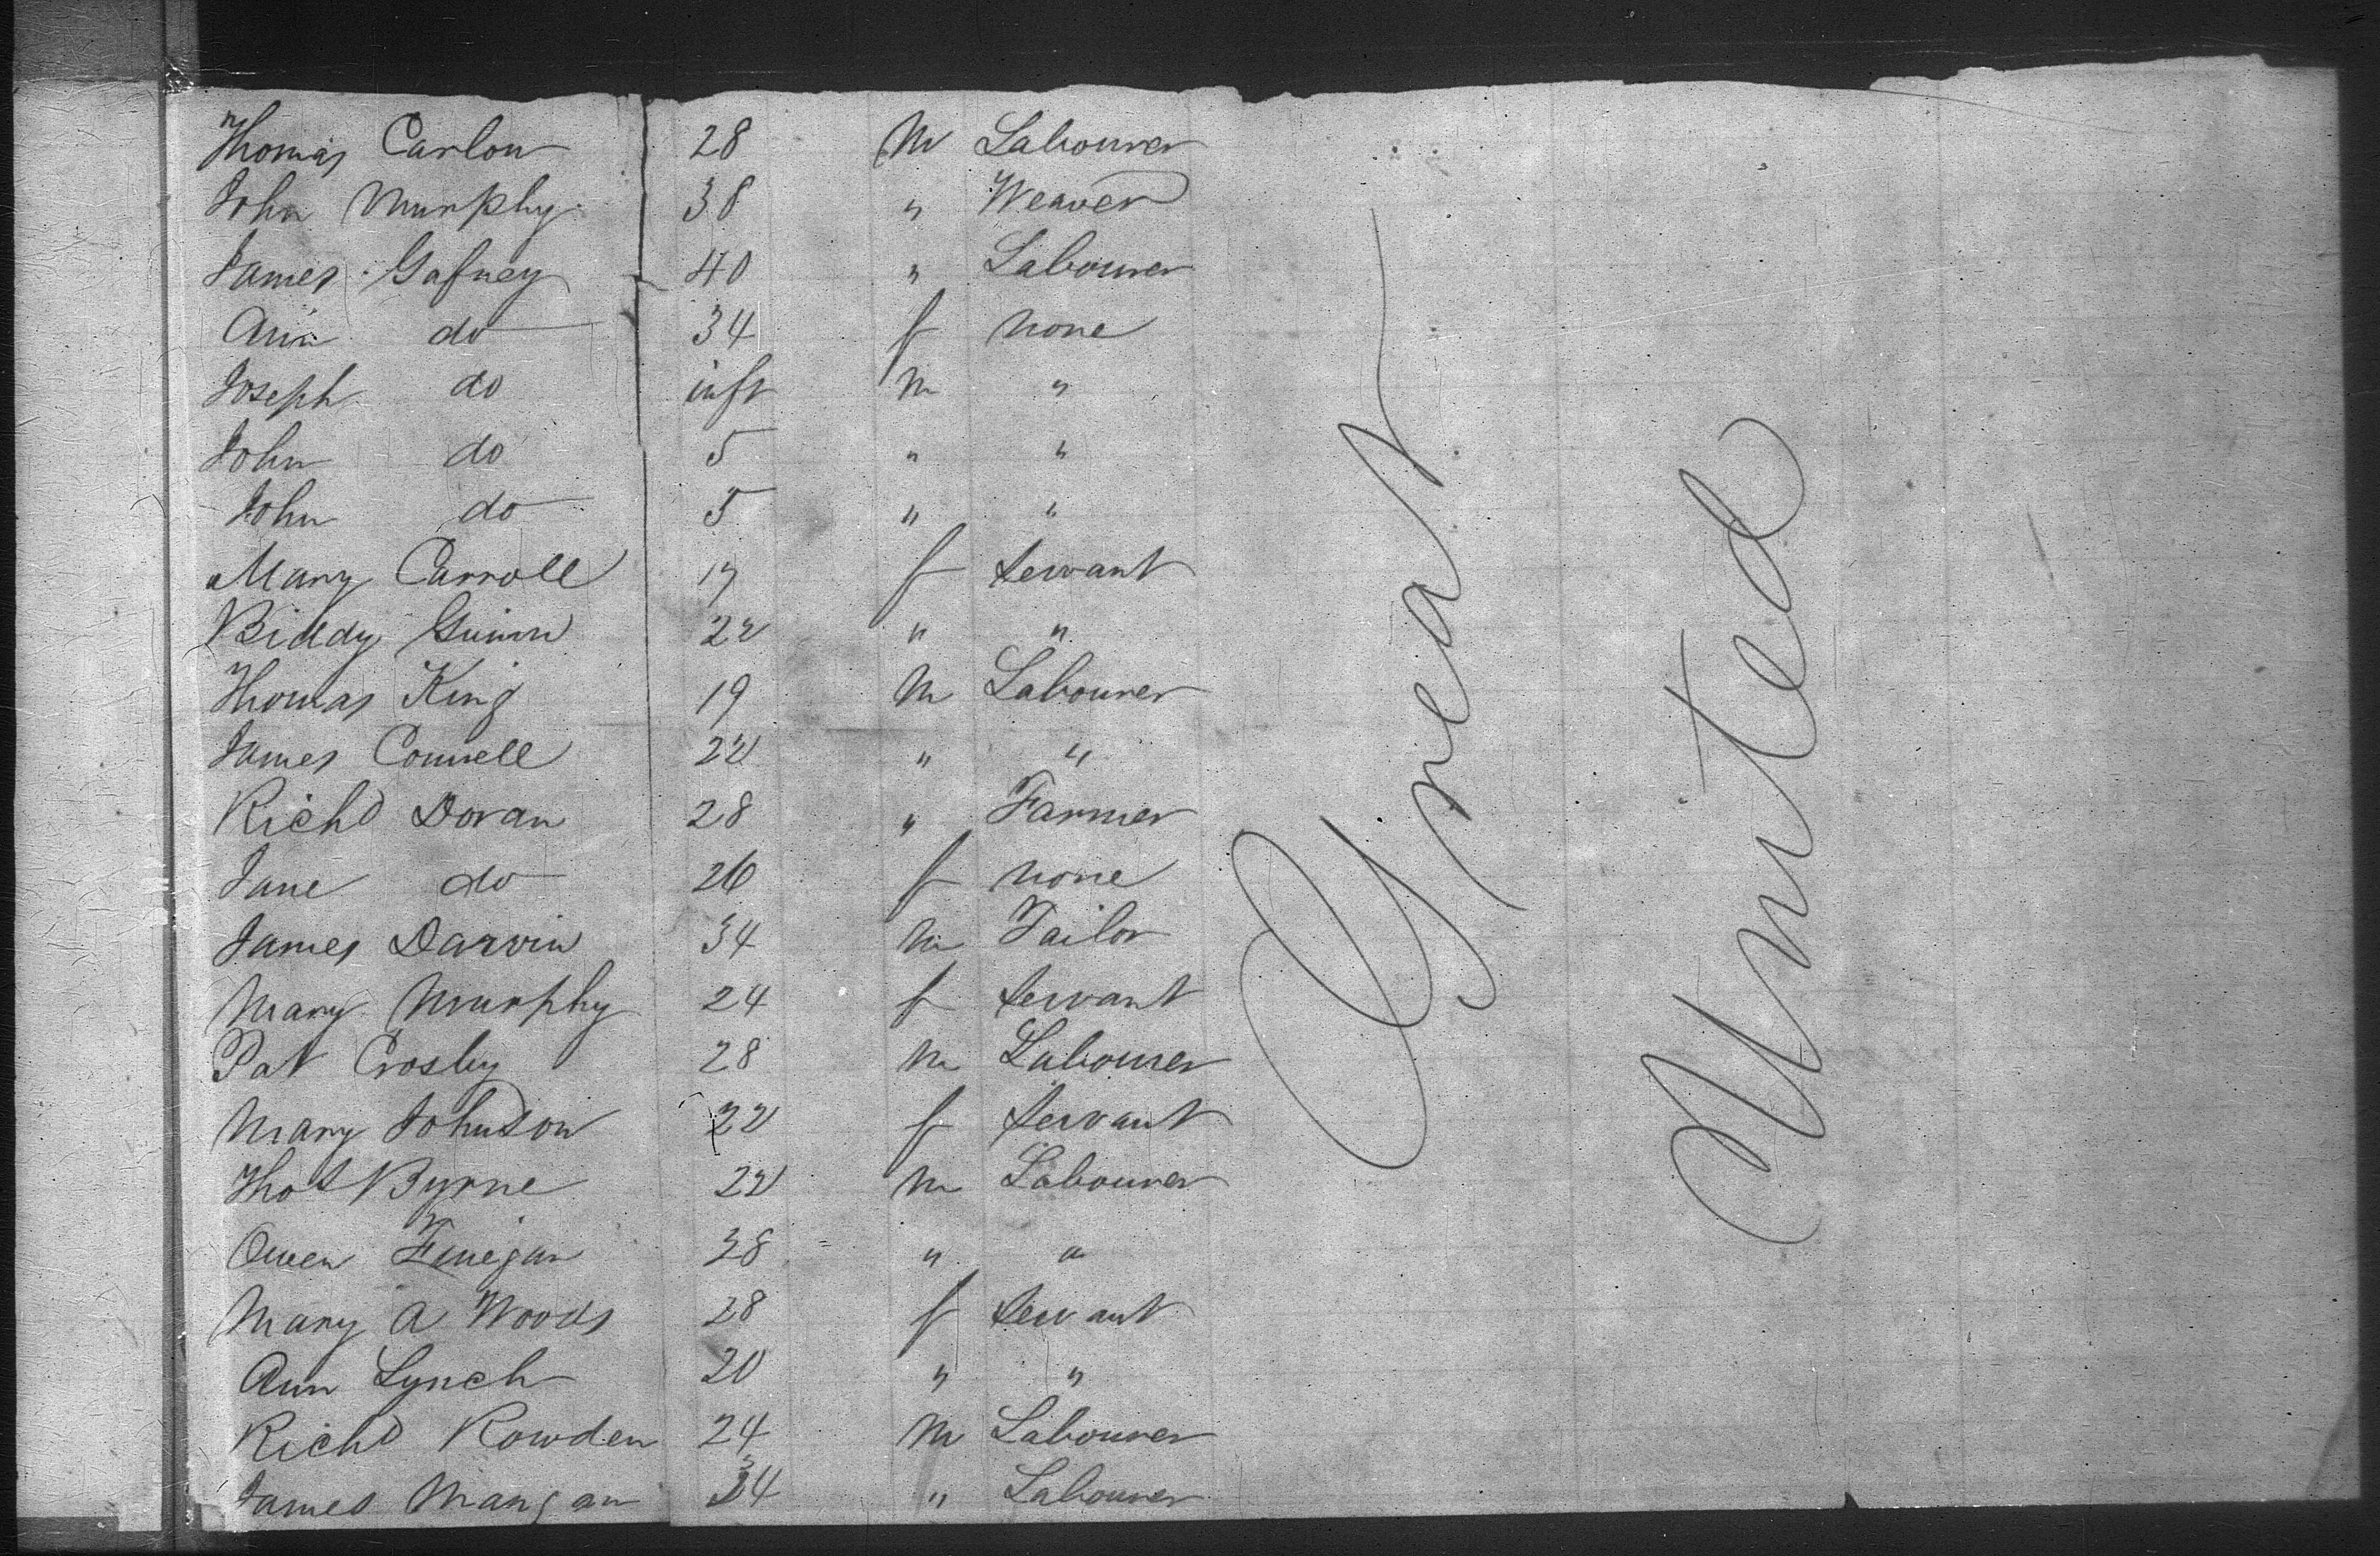 Thomas Carlon 28 M Labourer
John Murphy 38 " Weaver
James Gafney 40 " Labourer
Ann do 34 f none
Joseph do inft m "
John do 5 " "
John do 5 " "
Mary Carroll 17 f Servant
Biddy Guinn 22 " "
Thomas King 19 M Labourer
James Connell 22 " "
Richd Doran 28 " Farmer
Jane do 26 f none
James Darvin 34 m Tailor
Mary Murphy 24 f Servant
Pat Crosby 28 m Labourer
Mary Johnson 22 f Servant
Thos Byrne 22 m Labourer
Owen Finegan 38 " "
Mary A Woods 28 f Servant
Ann Lynch 20 " "
Richd Rowden 24 M Labourer
James Mangan 34 " Labourer
Great
United